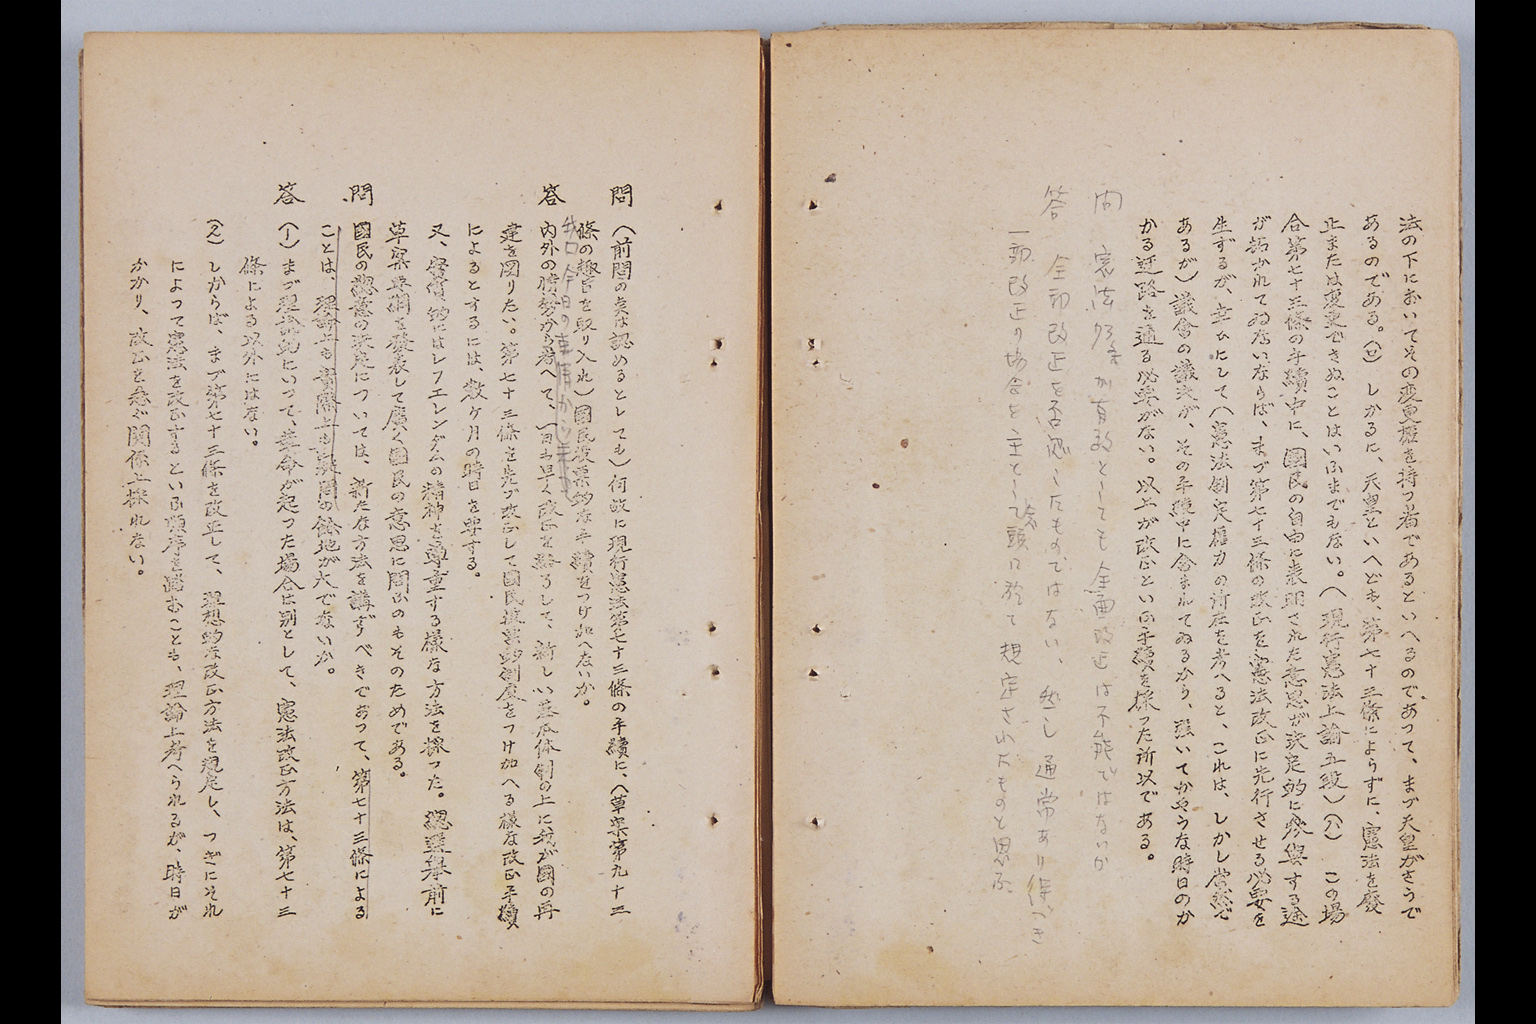 法の下においてその変更権を持つ者であるといへるのであつて、まづ天皇がさうで
あるのである。(ロ) しかるに、天皇といへども、第七十三條によらずに、憲法を廢
止または変更できぬことはいふまでもない。(現行憲法上諭五段)(ハ) この場
合第七十三條の手續中に、國民の自由に表明された意思が決定的に參與する途
が拓かれてゐないならば、まづ第七十三條の改正を憲法改正に先行させる必要を
生ずるが、幸ひにして(憲法制定権力の所在を考へると、これは、しかし当然で
あるが)議會の議決が、その手續中に含まれてゐるから、強いてかやうな時日のか
かる迂路を通る必要がない。以上が改正といふ手續を採つた所以である。
問 憲法 が有效としても全面改正は不能ではないか
答 全部改正を否認したものではない、然し通常あり得べき
一部改正の場合を主として頭に於て規定されたものと思ふ
問 (前問の点は認めるとしても)何故に現行憲法第七十三條の手續に、(草案第九十三
條の趣旨を取り入れ)國民投票的な手續をつけ加へないか。
答 内外の情勢から考へて、一日も早く改正を終るして、新しい基本体制の上に我が國の再
建を図りたい。第七十三條を先づ改正して國民投票的制度をつけ加へる様な改正手續
によるとするには、数ヶ月の時日を要する。
又、實質的にはレフエレンダムの精神を尊重する様な方法を採つた。總選挙前に
草案要綱を發表して廣く國民の意思に問ふのもそのためである。
問 國民の總意の決定については、新たな方法を講ずべきであつて、第七十三條による
ことは、理論上も實際上も疑問の餘地が大でないか。
答 (1) まづ理論的にいつて、革命が起つた場合は別として、憲法改正方法は、第七十三
條による以外にはない。
(2) しからば、まづ第七十三條を改正して、理想的な改正方法を規定し、つぎにそれ
によつて憲法を改正するといふ順序を踏むことも、理論上考へられるが、時日が
かかり、改正を急ぐ関係上採れない。